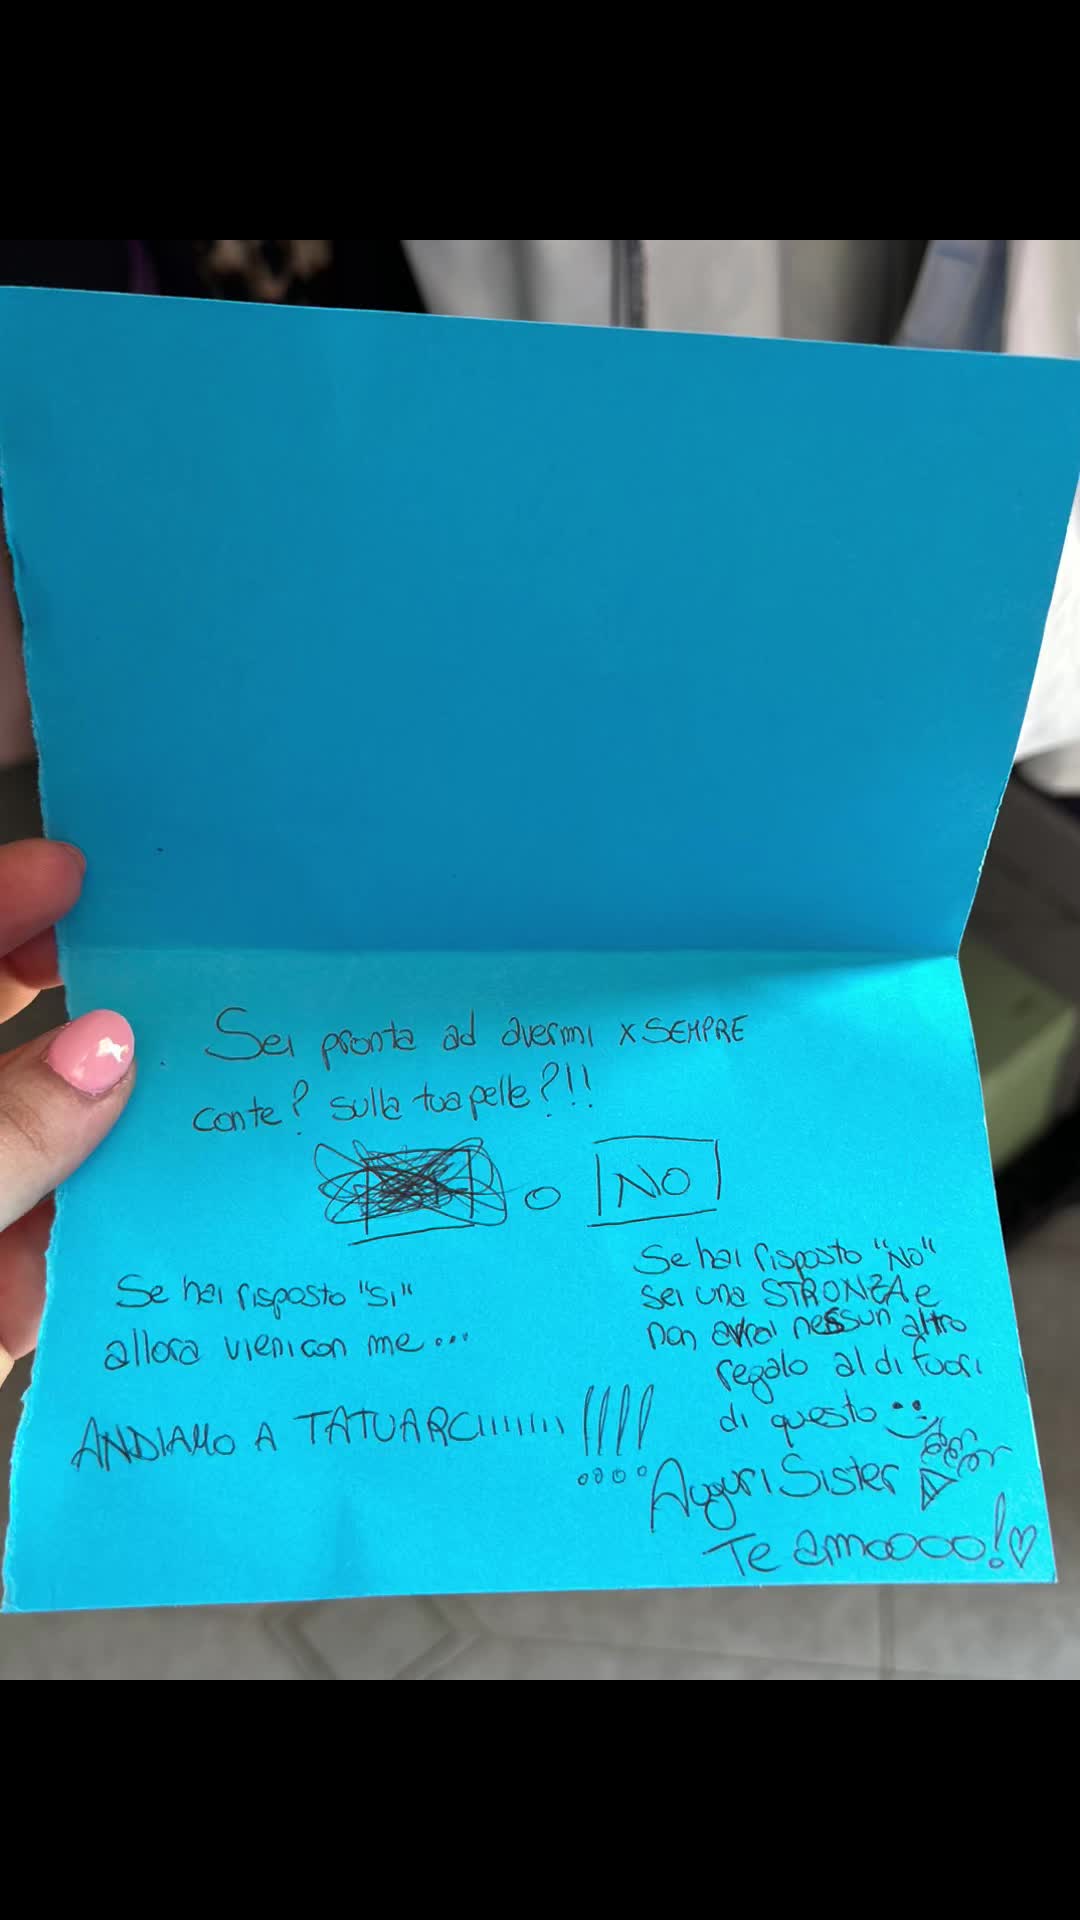 Sei pronta ad avermi x SEMPRE
con te? sulla tua pelle?!!
o NO
Se hai risposto "Si"
allora vieni con me...
ANDIAMO A TATUARCIIIIIII !!!!
Se hai risposto "NO"
sei una STRONZA e
non avrai nessun altro
regalo al di fuori
di questo
Auguri Sister
Te amoooo!